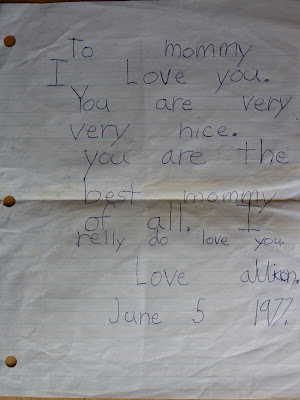 To mommy
I Love you.
You are very
very nice.
you are the
best mommy
of all. I
relly do love you.
Love allison.
June 5 1977.